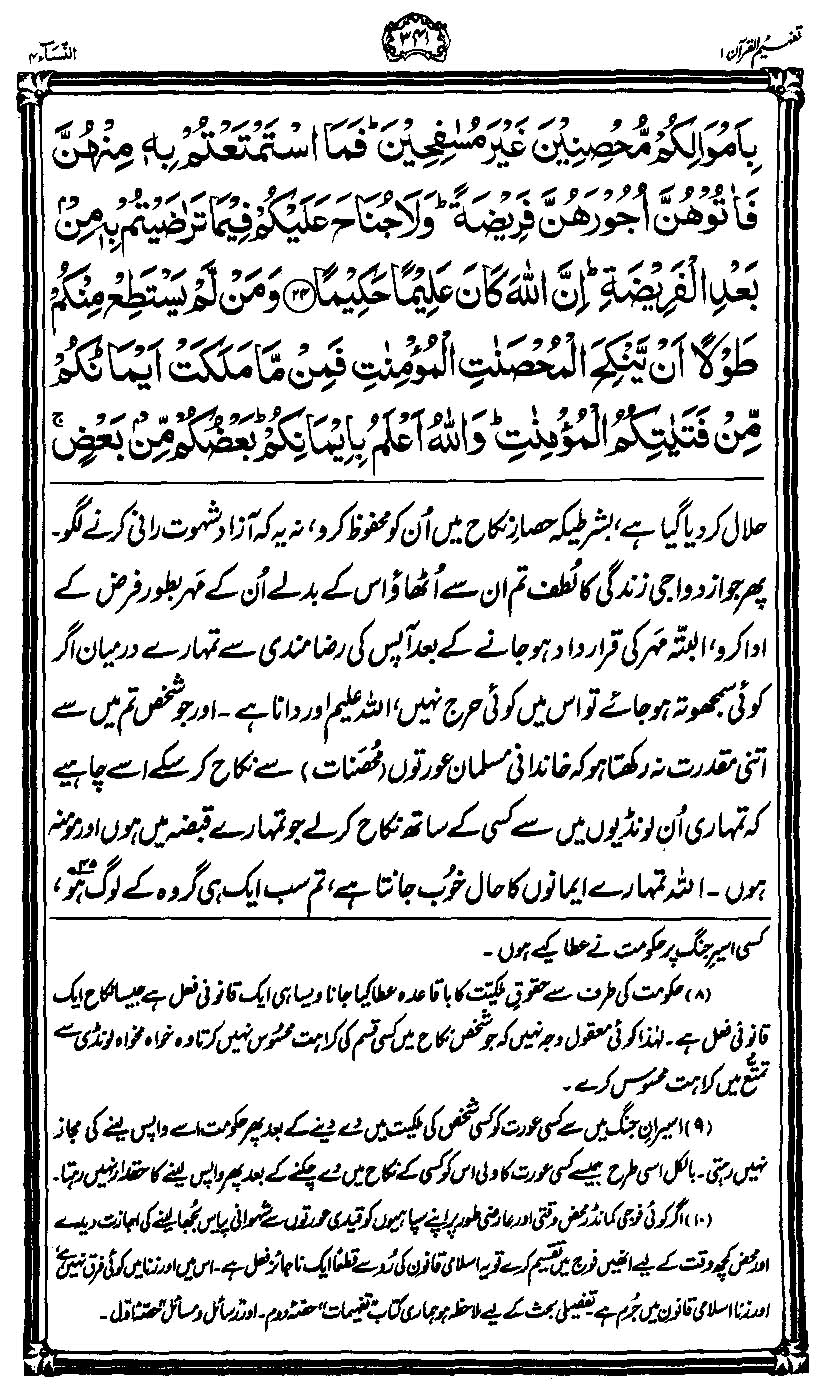 تفہیم القرآن ۱
۳۴۱
النسآء ۴
بِاَمْوَالِكُمْ مُّحْصِنِيْنَ غَيْرَ مُسٰفِحِيْنَ ؕ فَمَا اسْتَمْتَعْتُمْ بِهٖ مِنْهُنَّ
فَاٰتُوْهُنَّ اُجُوْرَهُنَّ فَرِيْضَةً ؕ وَلَا جُنَاحَ عَلَيْكُمْ فِيْمَا تَرٰضَيْتُمْ بِهٖ مِنْۢ
بَعْدِ الْفَرِيْضَةِ ؕ اِنَّ اللّٰهَ كَانَ عَلِيْمًا حَكِيْمًا ﴿۲۴﴾ وَمَنْ لَّمْ يَسْتَطِعْ مِنْكُمْ
طَوْلًا اَنْ يَّنْكِحَ الْمُحْصَنٰتِ الْمُؤْمِنٰتِ فَمِنْ مَّا مَلَكَتْ اَيْمَانُكُمْ
مِّنْ فَتَيٰتِكُمُ الْمُؤْمِنٰتِ ؕ وَاللّٰهُ اَعْلَمُ بِاِيْمَانِكُمْ ؕ بَعْضُكُمْ مِّنْۢ بَعْضٍ ۚ
حلال کر دیا گیا ہے، بشرطیکہ حصارِ نکاح میں اُن کو محفوظ کرو، نہ یہ کہ آزاد شہوت رانی کرنے لگو۔
پھر جو ازدواجی زندگی کا لُطف تم ان سے اُٹھاؤ اس کے بدلے اُن کے مَہر بطور فرض کے
ادا کرو، البتہ مَہر کی قرارداد ہو جانے کے بعد آپس کی رضامندی سے تمہارے درمیان اگر
کوئی سمجھوتہ ہو جائے تو اس میں کوئی حرج نہیں، اللہ علیم اور دانا ہے۔ اور جو شخص تم میں سے
اتنی مقدرت نہ رکھتا ہو کہ خاندانی مسلمان عورتوں (مُحصَنات) سے نکاح کر سکے اسے چاہیے
کہ تمہاری اُن لونڈیوں میں سے کسی کے ساتھ نکاح کر لے جو تمہارے قبضہ میں ہوں اور مومنہ
ہوں۔ اللہ تمہارے ایمانوں کا حال خُوب جانتا ہے، تم سب ایک ہی گروہ کے لوگ ہو،۴۵
کسی اسیرِ جنگ پر حکومت نے عطا کیے ہوں۔
(۸) حکومت کی طرف سے حقوقِ ملکیّت کا باقاعدہ عطا کیا جانا ویسا ہی ایک قانونی فعل ہے جیسا نکاح ایک
قانونی فعل ہے۔ لہٰذا کوئی معقول وجہ نہیں کہ جو شخص نکاح میں کسی قسم کی کراہت محسُوس نہیں کرتا وہ خواہ مخواہ لونڈی سے
تمتّع میں کراہت محسوس کرے۔
(۹) اسیرانِ جنگ میں سے کسی عورت کو کسی شخص کی ملکیت میں دے دینے کے بعد پھر حکومت اسے واپس لینے کی مجاز
نہیں رہتی۔ بالکل اسی طرح جیسے کسی عورت کا ولی اس کو کسی کے نکاح میں دے چکنے کے بعد پھر واپس لینے کا حقدار نہیں رہتا۔
(۱۰) اگر کوئی فوجی کمانڈر محض وقتی اور عارضی طور پر اپنے سپاہیوں کو قیدی عورتوں سے شہوانی پیاس بُجھا لینے کی اجازت دیدے
اور محض کچھ وقت کے لیے انھیں فوج میں تقسیم کرے تو یہ اسلامی قانون کی رُو سے قطعاً ایک ناجائز فعل ہے۔ اس میں اور زنا میں کوئی فرق نہیں ہے
اور زنا اسلامی قانون میں جُرم ہے تفصیلی بحث کے لیے ملاحظہ ہو ہماری کتاب ”تفہیمات“ حصّہ دوم۔ اور ”رسائل و مسائل“ حصّہ اوّل۔